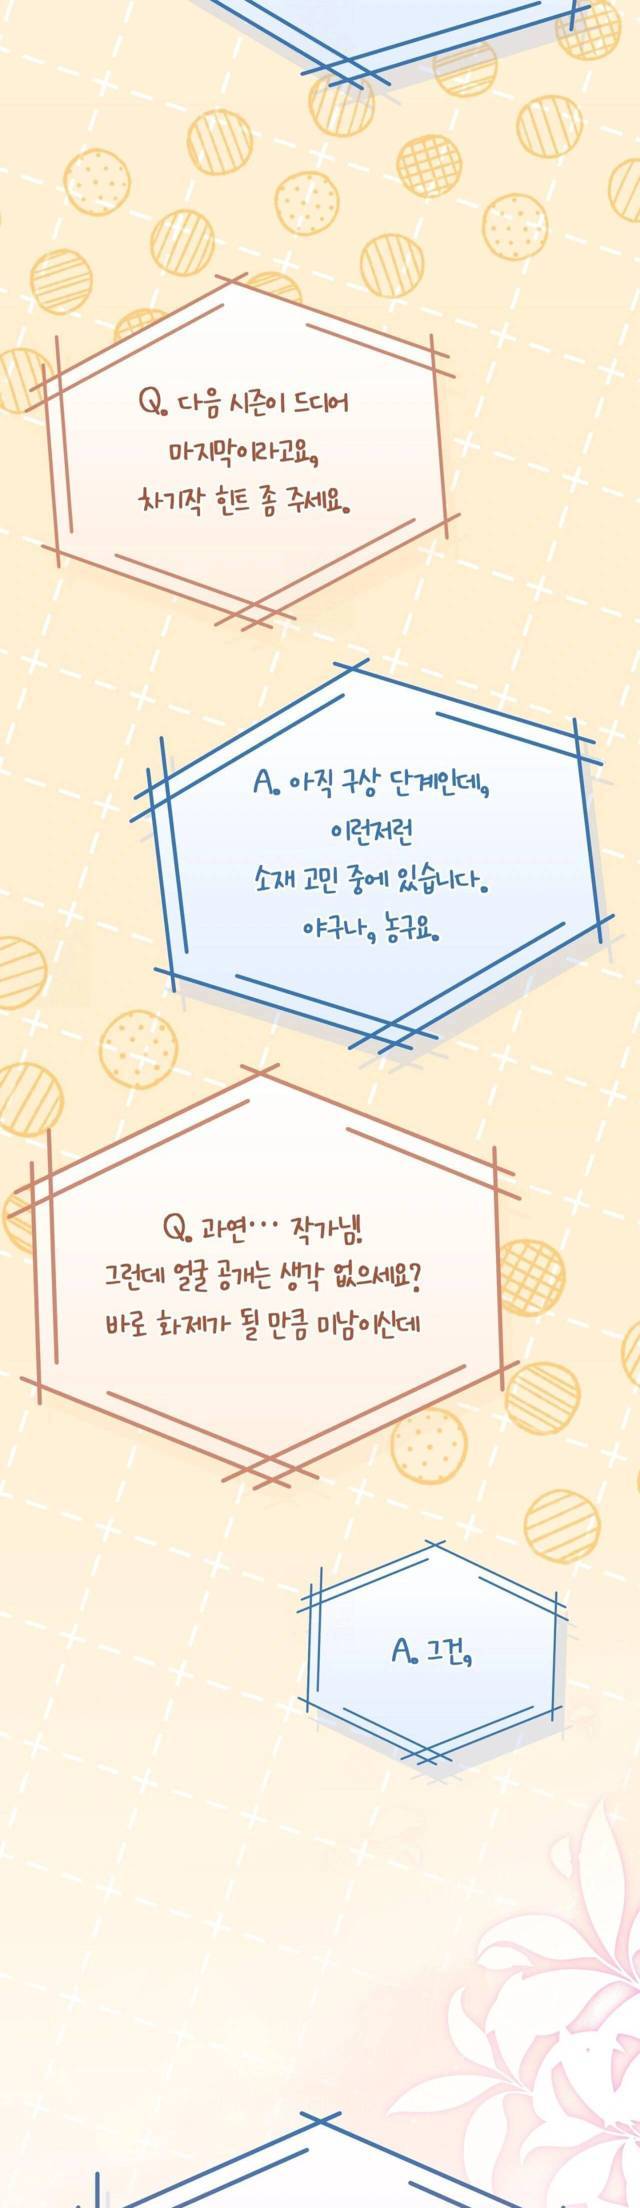 Q. 다음 시즌이 드디어
마지막이라고요,
차기작 힌트 좀 주세요.
A. 아직 구상 단계인데,
이런저런
소재 고민 중에 있습니다.
야구나, 농구요.
Q. 과연··· 작가님!
그런데 얼굴 공개는 생각 없으세요?
바로 화제가 될 만큼 미남이신데
A. 그건,